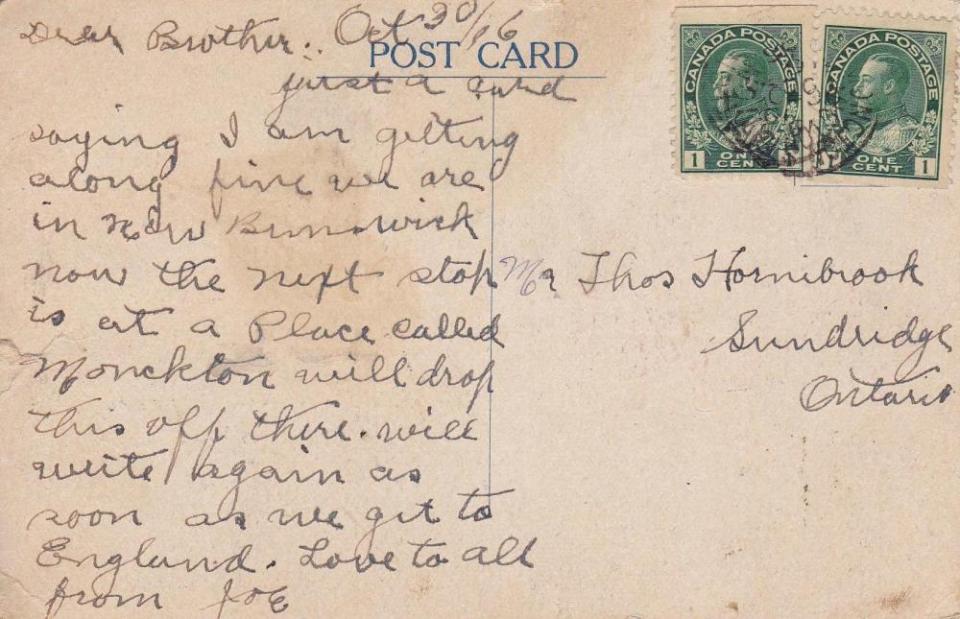 Dear Brother. Oct 30/16
POST CARD
just a card
saying I am getting
along fine we are
in New Brunswick
now the next stop
is at a Place called
Monckton will drop
this off there. will
write again as
soon as we get to
England. Love to all
from Joe
CANADA POSTAGE
1 ONE CENT
CANADA POSTAGE
ONE CENT 1
Mr Thos Hornibrook
Sundridge
Ontario